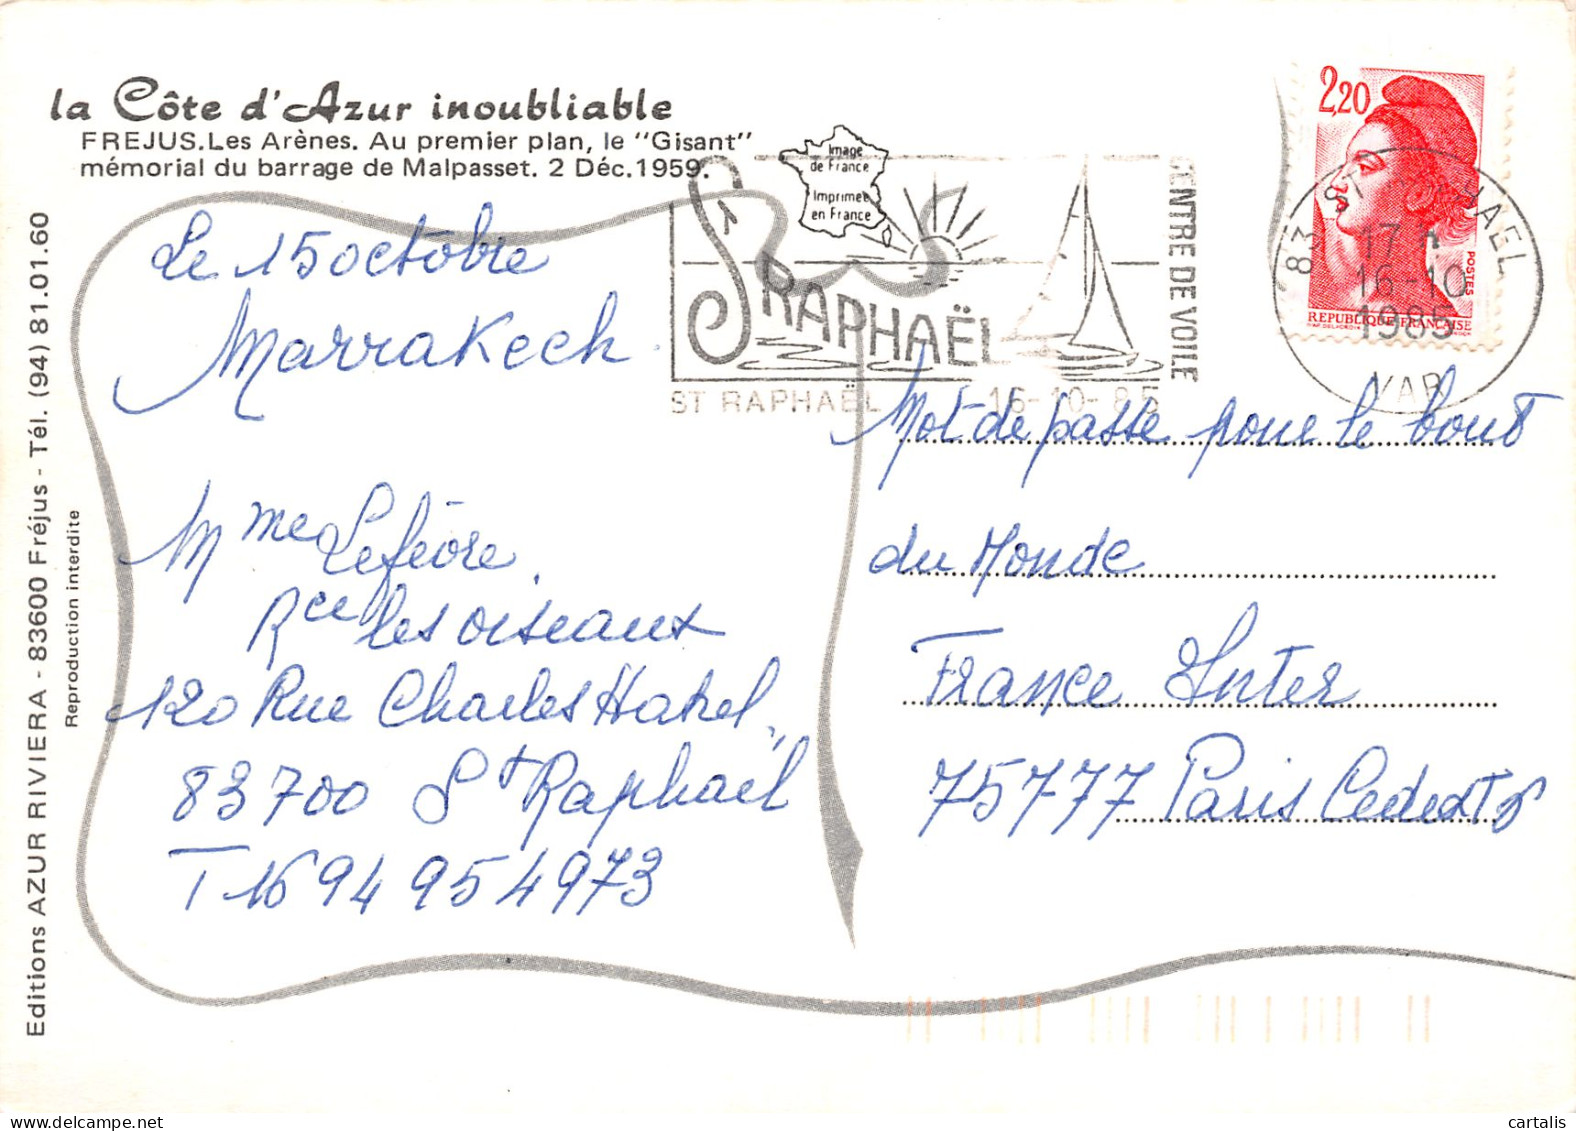 la Côte d'Azur inoubliable
FREJUS.Les Arènes. Au premier plan, le "Gisant"
mémorial du barrage de Malpasset. 2 Déc.1959.
Image
de France
Imprimée
en France
ST RAPHAËL
CENTRE DE VOILE
ST RAPHAËL 16-10-85
2,20
POSTES
REPUBLIQUE FRANÇAISE
83 ST RAPHAEL
17 H
16-10
1985
VAR
Editions AZUR RIVIERA - 83600 Fréjus - Tél. (94) 81.01.60
Reproduction interdite
Le 15 octobre
Marrakech.
Mme Lefèvre
Rce les oiseaux
120 Rue Charles
83700 St Raphaël
T 16 94 95 49 73
Mot de passe pour le bout
du Monde
France Inter
75777 Paris Cedex
cartalis